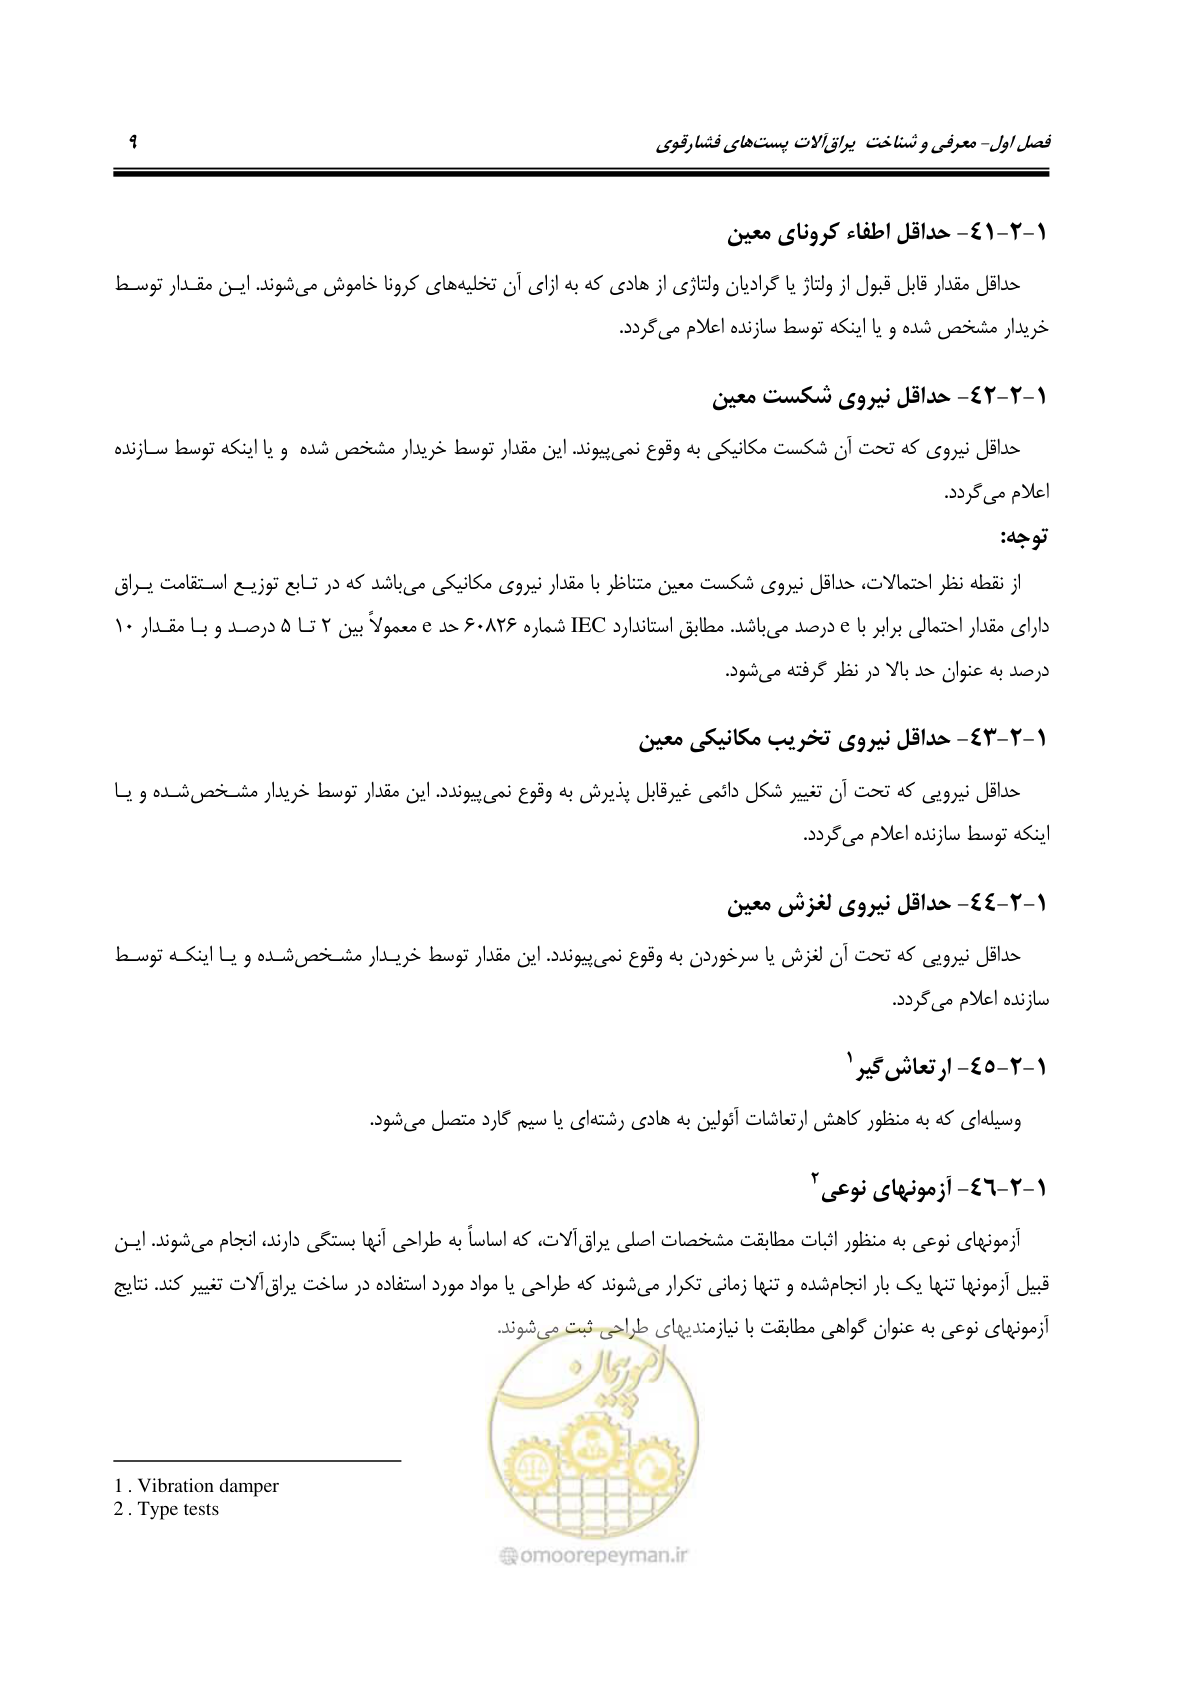 فصل اول- معرفی و شناخت یراق‌آلات پست‌های فشارقوی ۹
۱-۲-۴۱- حداقل اطفاء کرونای معین
حداقل مقدار قابل قبول از ولتاژ یا گرادیان ولتاژی از هادی که به ازای آن تخلیه‌های کرونا خاموش می‌شوند. این مقدار توسط
خریدار مشخص شده و یا اینکه توسط سازنده اعلام می‌گردد.
۱-۲-۴۲- حداقل نیروی شکست معین
حداقل نیروی که تحت آن شکست مکانیکی به وقوع نمی‌پیوند. این مقدار توسط خریدار مشخص شده و یا اینکه توسط سازنده
اعلام می‌گردد.
توجه:
از نقطه نظر احتمالات، حداقل نیروی شکست معین متناظر با مقدار نیروی مکانیکی می‌باشد که در تابع توزیع استقامت یراق
دارای مقدار احتمالی برابر با e درصد می‌باشد. مطابق استاندارد IEC شماره ۶۰۸۲۶ حد e معمولاً بین ۲ تا ۵ درصد و با مقدار ۱۰
درصد به عنوان حد بالا در نظر گرفته می‌شود.
۱-۲-۴۳- حداقل نیروی تخریب مکانیکی معین
حداقل نیرویی که تحت آن تغییر شکل دائمی غیرقابل پذیرش به وقوع نمی‌پیوندد. این مقدار توسط خریدار مشخص‌شده و یا
اینکه توسط سازنده اعلام می‌گردد.
۱-۲-۴۴- حداقل نیروی لغزش معین
حداقل نیرویی که تحت آن لغزش یا سرخوردن به وقوع نمی‌پیوندد. این مقدار توسط خریدار مشخص‌شده و یا اینکه توسط
سازنده اعلام می‌گردد.
۱-۲-۴۵- ارتعاش‌گیر۱
وسیله‌ای که به منظور کاهش ارتعاشات آئولین به هادی رشته‌ای یا سیم گارد متصل می‌شود.
۱-۲-۴۶- آزمونهای نوعی۲
آزمونهای نوعی به منظور اثبات مطابقت مشخصات اصلی یراق‌آلات، که اساساً به طراحی آنها بستگی دارند، انجام می‌شوند. این
قبیل آزمونها تنها یک بار انجام‌شده و تنها زمانی تکرار می‌شوند که طراحی یا مواد مورد استفاده در ساخت یراق‌آلات تغییر کند. نتایج
آزمونهای نوعی به عنوان گواهی مطابقت با نیازمندیهای طراحی ثبت می‌شوند.
امور پیمان
1 . Vibration damper
2 . Type tests
@omoorepeyman.ir